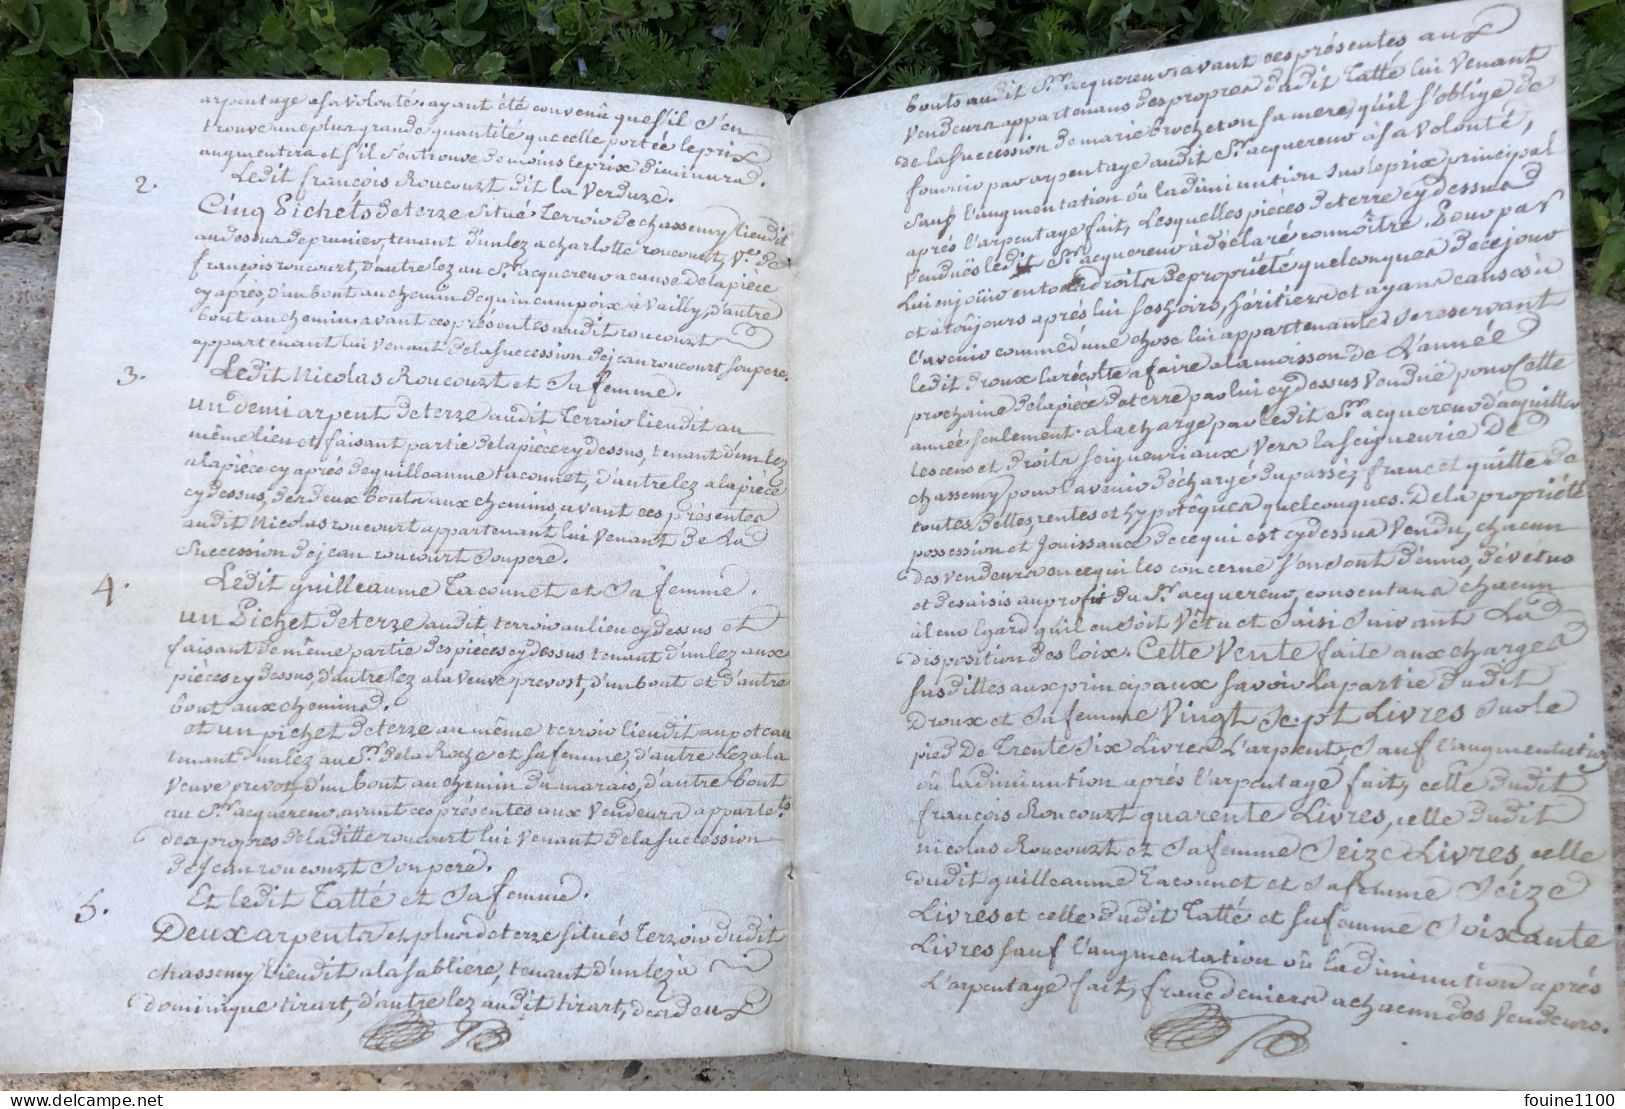 arpentage asa volonté ayant été convenû que s'il s'en
trouve une plus grande quantité que celle portée le prix
augmentera et s'il s'en trouve de moins le prix diminura.
2.
Ledit françois Roucourt dit la Verduze.
Cinq Pichets de terre situé Terroir de chassemy lieudit
audessus de prunier, tenant d'un lez a charlotte roucourt, Vᵉ de
françois roucourt, d'autre lez au Sʳ acquereur a cause de la pièce
cy après, d'un bout au chemin de quincampoix à Vailly, d'autre
bout au chemin. avant ces présentes audit roucourt
appartenant lui venant de la succession de jean roucourt son pere.
3.
Ledit Nicolas Roucourt et sa femme.
un demi arpent de terre audit Terroir lieudit au
même lieu et faisant partie de la pièce cy dessus, tenant d'un lez
a la pièce cy après de guilleaume taconnet, d'autre lez a la pièce
cy dessus, des deux bouts aux chemins, avant ces présentes
audit Nicolas roucourt appartenant lui venant de La
succession de jean roucourt son pere.
4.
Ledit guilleaume Taconnet et sa femme.
un Pichet de terre audit terroir au lieu cy dessus et
faisant de même partie des pièces cy dessus tenant d'un lez aux
pièces cy dessus, d'autre lez a la veuve prevost, d'un bout et d'autre
bout aux chemins.
et un pichet de terre au même terroir lieudit au poteau
tenant d'un lez au Sʳ de la Roche et sa femme, d'autre Lez a la
veuve prevot, d'un bout au chemin du marais, d'autre bout
au Sʳ acquereur, avant ces présentes aux Vendeurs appartets
des propres de laditte roucourt lui venant de la succession
de jean roucourt son pere.
5.
Et ledit Tatté et sa femme.
Deux arpents et plus de terre situés Terroir dudit
chassemy lieudit a la sabliere, tenant d'un lez à
dominique tirart, d'autre lez audit tirart, des deux
bouts audit Sʳ acquereur avant ces présentes aux
Vendeurs appartenans des propres dudit Tatté lui venant
de la succession de marie brocheton sa mere, qu'il s'oblige de
fournir par arpentage audit Sʳ acquereur à sa volonté,
sauf l'augmentation où la diminution sur le prix principal
après l'arpentage fait, Lesquelles pièces de terre cy dessus
Venduës ledit Sʳ acquereur à déclaré connoître. Pour par
Lui en jouir en tous droits de propriété quelconques de ce jour
et à toujours après lui ses hoirs, héritiers et ayans causes à
l'avenir comme d'une chose lui appartenante se reservant
ledit Droux la récolte a faire a la moisson de L'année
prochaine de la pièce de terre par lui cy dessus Venduë pour Cette
année seulement. a la charge par ledit Sʳ acquereur d'acquitter
les cens et droits seigneuriaux vers la seigneurie de
chassemy pour l'avenir déchargé du passé, franc et quitte de
toutes dettes, rentes et hypotêques quelconques. De la propriété
possession et jouissance de ce qui est cy dessus Vendu, chacun
des vendeurs en ce qui les concerne s'en sont demis, dévetus
et desaisis au profit du Sʳ acquereur, consentans chacun
à leur Egard qu'il en soit Vêtu et saisi suivant La
disposition des loix. Cette Vente faite aux charges
susdittes aux principaux savoir La partie dudit
Droux et sa femme Vingt Sept Livres sur le
pied De Trente Six Livres L'arpent, sauf l'augmentation
où la diminution après l'arpentage fait, celle dudit
françois Roucourt quarente Livres, celle dudit
nicolas Roucourt et sa femme Seize Livres, celle
dudit guilleaume Taconnet et sa femme Seize
Livres et celle dudit Tatté et sa femme Soixante
Livres sauf l'augmentation où la diminution après
L'arpentage fait, franc deniers a chacun des Vendeurs.
fouine1100